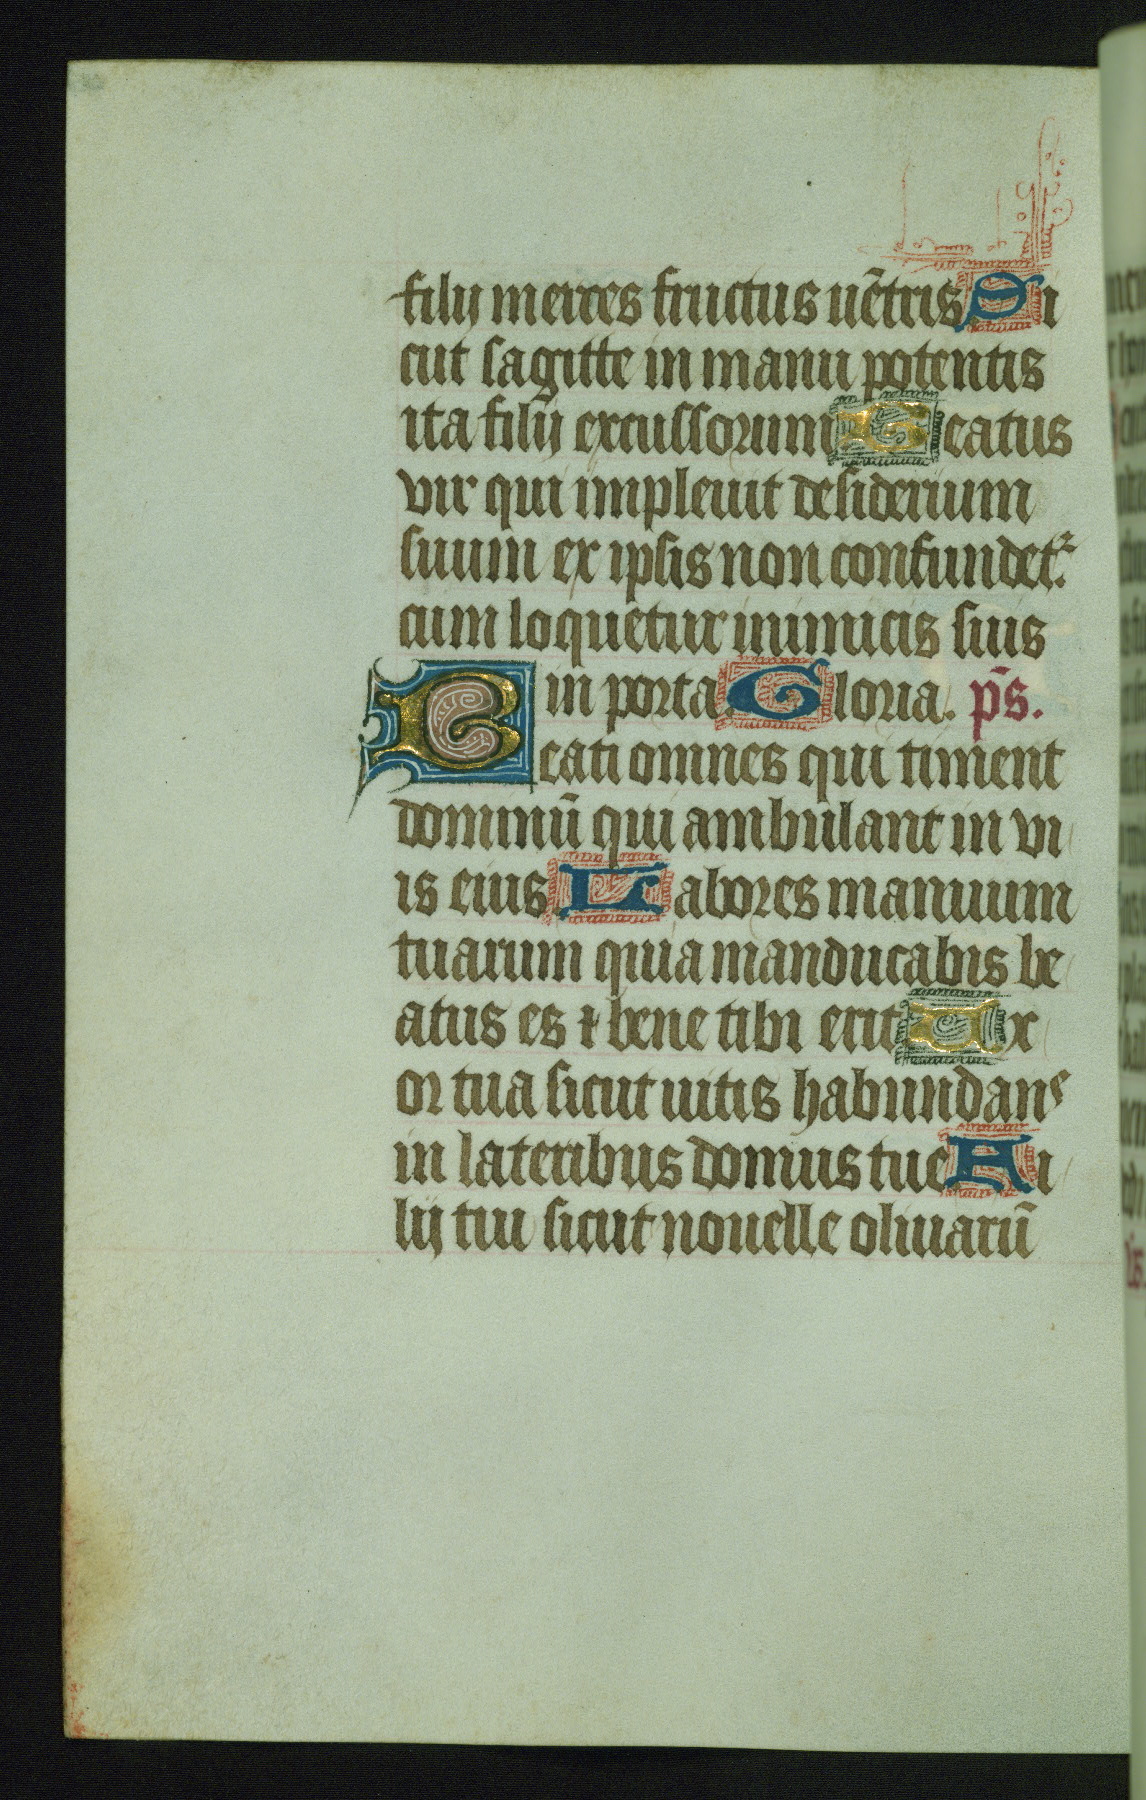 filij merces fructus uẽtris Si
cut sagitte in manu potentis
ita filij excussorum Beatus
vir qui impleuit desiderium
suum ex ipsis non confundet᷑
cum loquetur inimicis suis
in porta Gloria. p̃s.
Beati omnes qui timent
dominũ qui ambulant in vi
is eius Labores manuum
tuarum quia manducabis be
atus es ⁊ bene tibi erit Ux
or tua sicut uitis habundans
in lateribus domus tue Fi
lij tui sicut nouelle oliuarũ